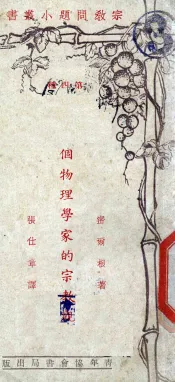 宗教問題小叢書
第四種
個物理學家的宗教觀
密爾根著
張仕章譯
青年協會書局出版